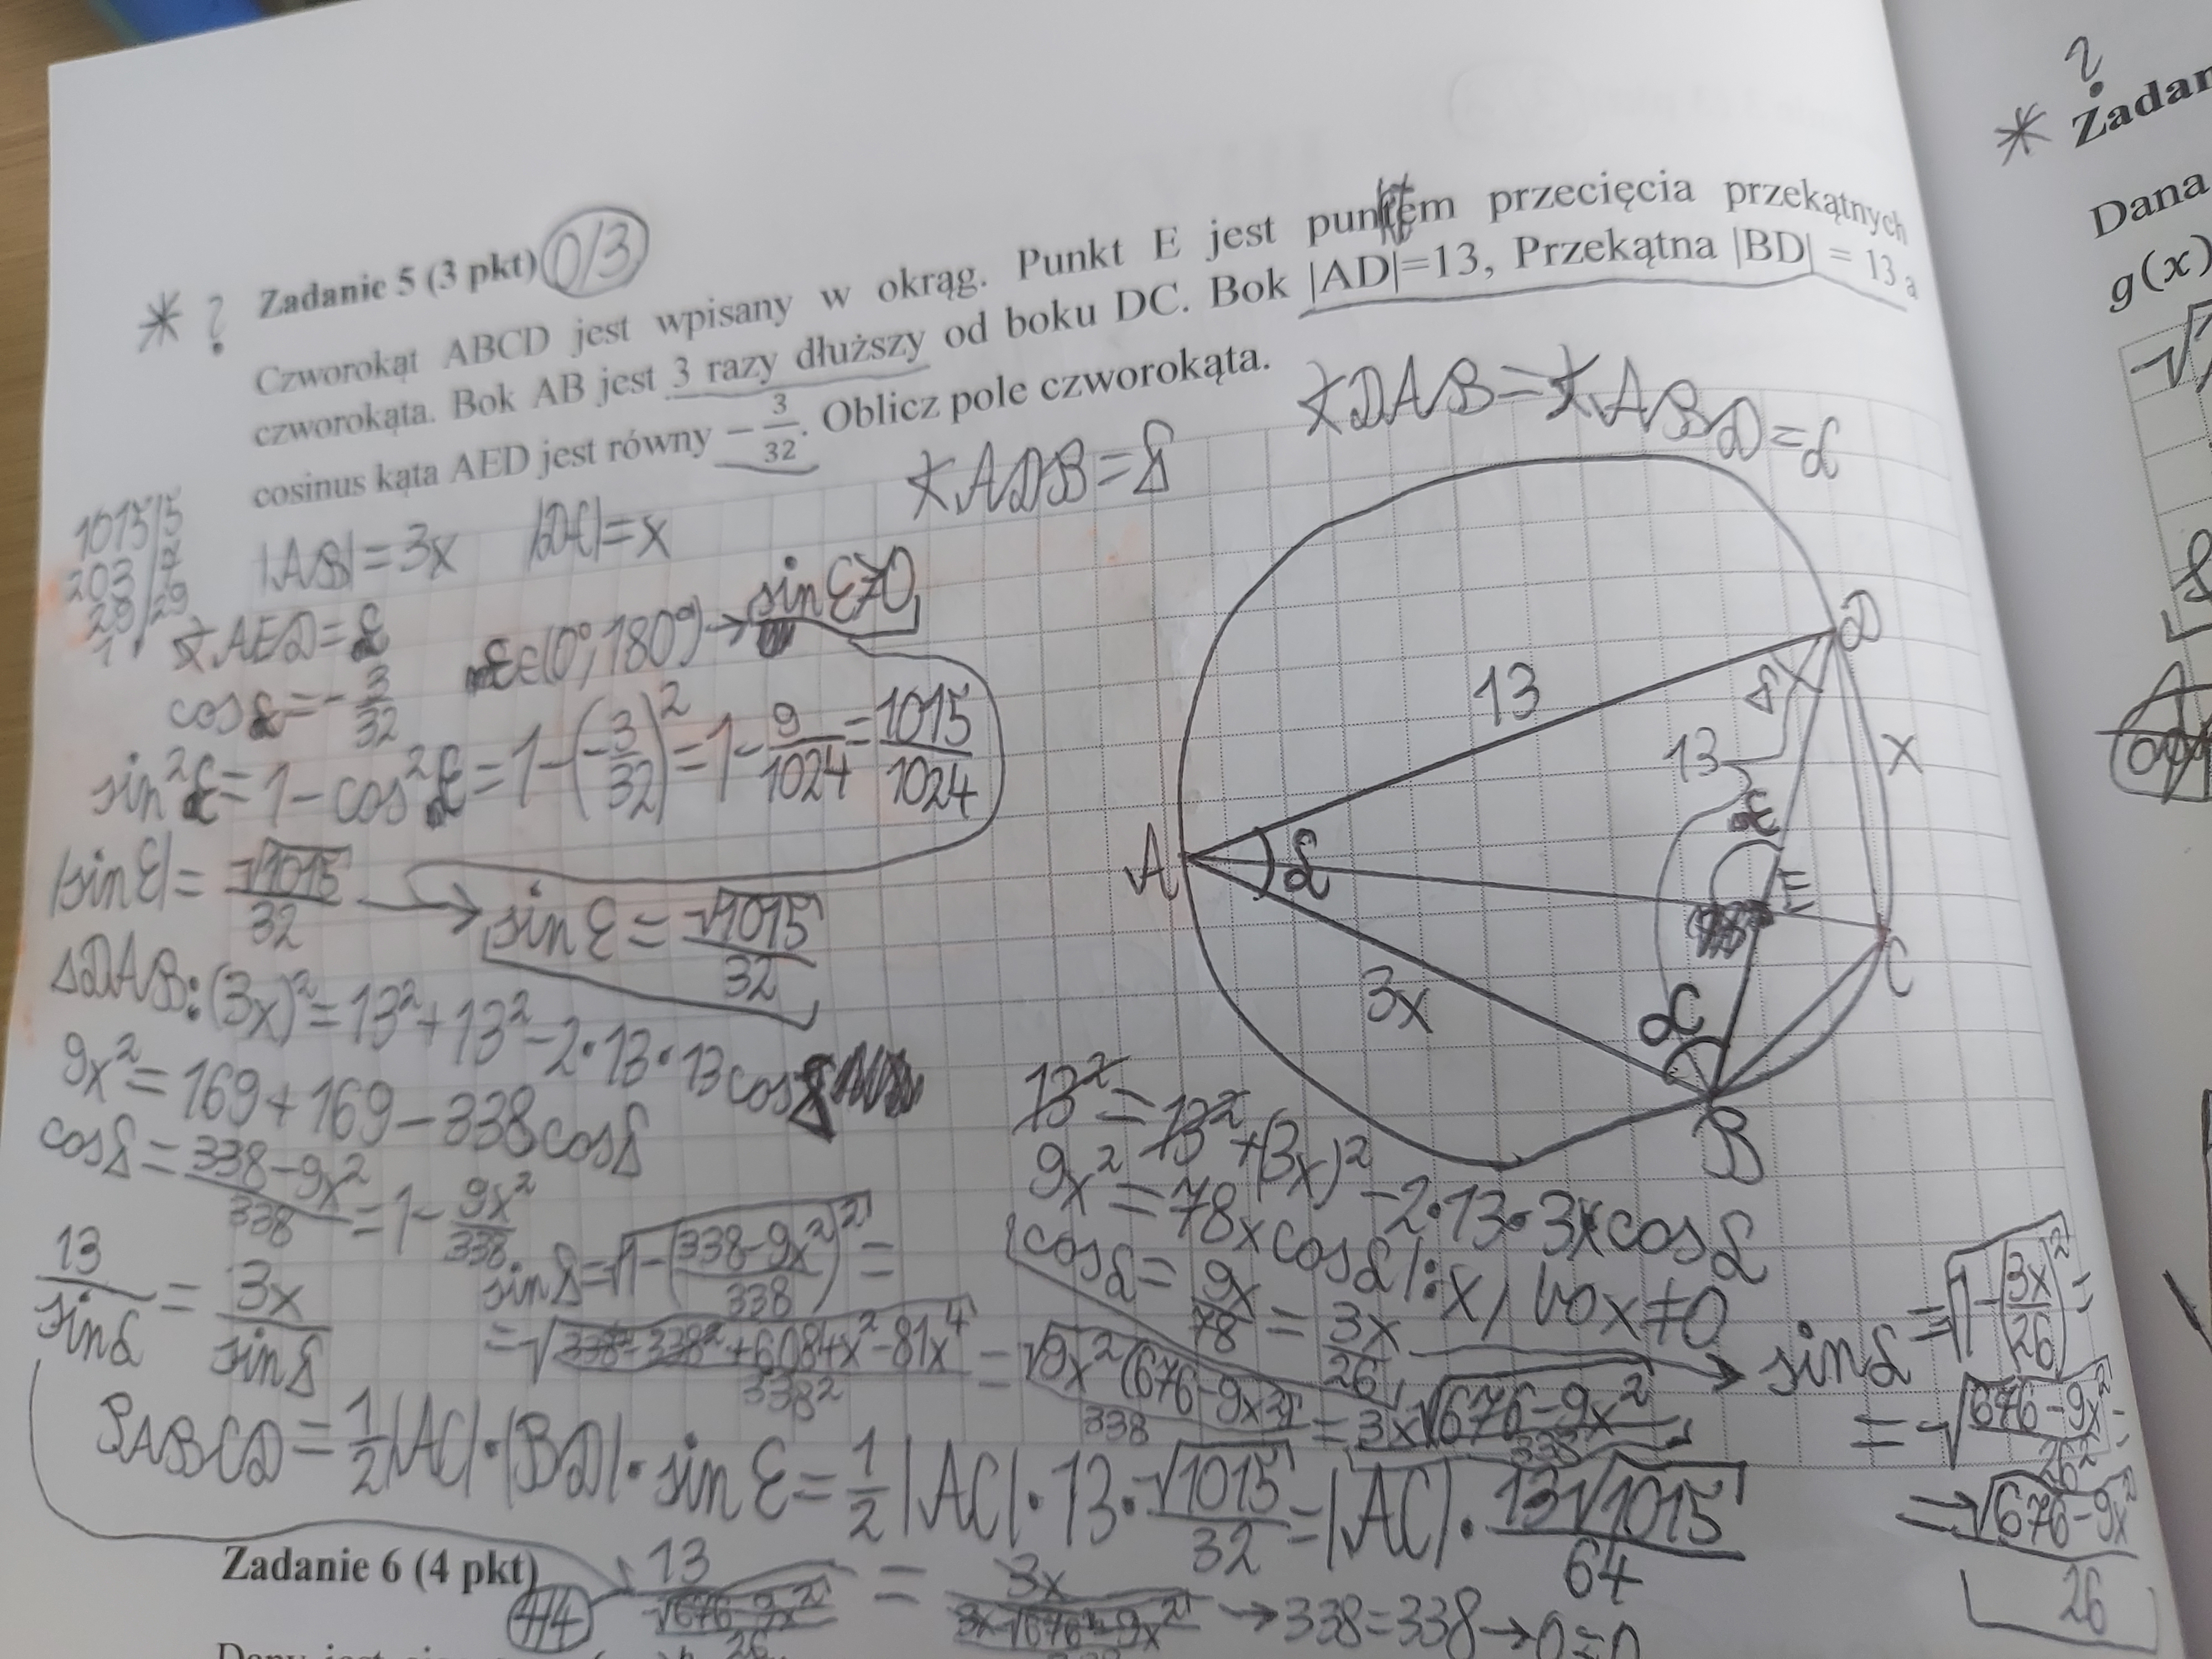 Zadanie 5 (3 pkt) 0/3
* ?
Czworokąt ABCD jest wpisany w okrąg. Punkt E jest punktem przecięcia przekątnych
czworokąta. Bok AB jest 3 razy dłuższy od boku DC. Bok |AD|=13, Przekątna |BD| = 13 a
cosinus kąta AED jest równy -3/32. Oblicz pole czworokąta.
∢ADB=δ
∢DAB=∢ABD=α
1015|5
203|7
29|29
1
|AB|=3x |DC|=x
∢AED=ε
ε∈(0°,180°)→sinε>0
cosε=-3/32
sin²ε=1-cos²ε=1-(-3/32)²=1-9/1024=1015/1024
|sinε|=√1015/32 → sinε=√1015/32
ΔDAB: (3x)²=13²+13²-2·13·13cosδ
9x²=169+169-338cosδ
cosδ=(338-9x²)/338=1-9x²/338
13/sinα=3x/sinδ
sinδ=√(1-((338-9x²)/338)²)=
=√((338²-338²+6084x²-81x⁴)/338²)=√(9x²(676-9x²))/338=3x√(676-9x²)/338
13²=13²+(3x)²-2·13·3xcosα
9x²=78xcosα |:x, bo x≠0
cosα=9x/78=3x/26 → sinα=√(1-(3x/26)²)=
=√((676-9x²)/26²)=
=√(676-9x²)/26
A
B
C
D
E
13
13
x
3x
α
α
δ
ε
PABCD=1/2|AC|·|BD|·sinε=1/2|AC|·13·√1015/32=|AC|·13√1015/64
Zadanie 6 (4 pkt) 4/4
13/(√(676-9x²)/26)=3x/(3x√(676-9x²)/338)→338=338→0=0
?
* Zadan
Dana
g(x)